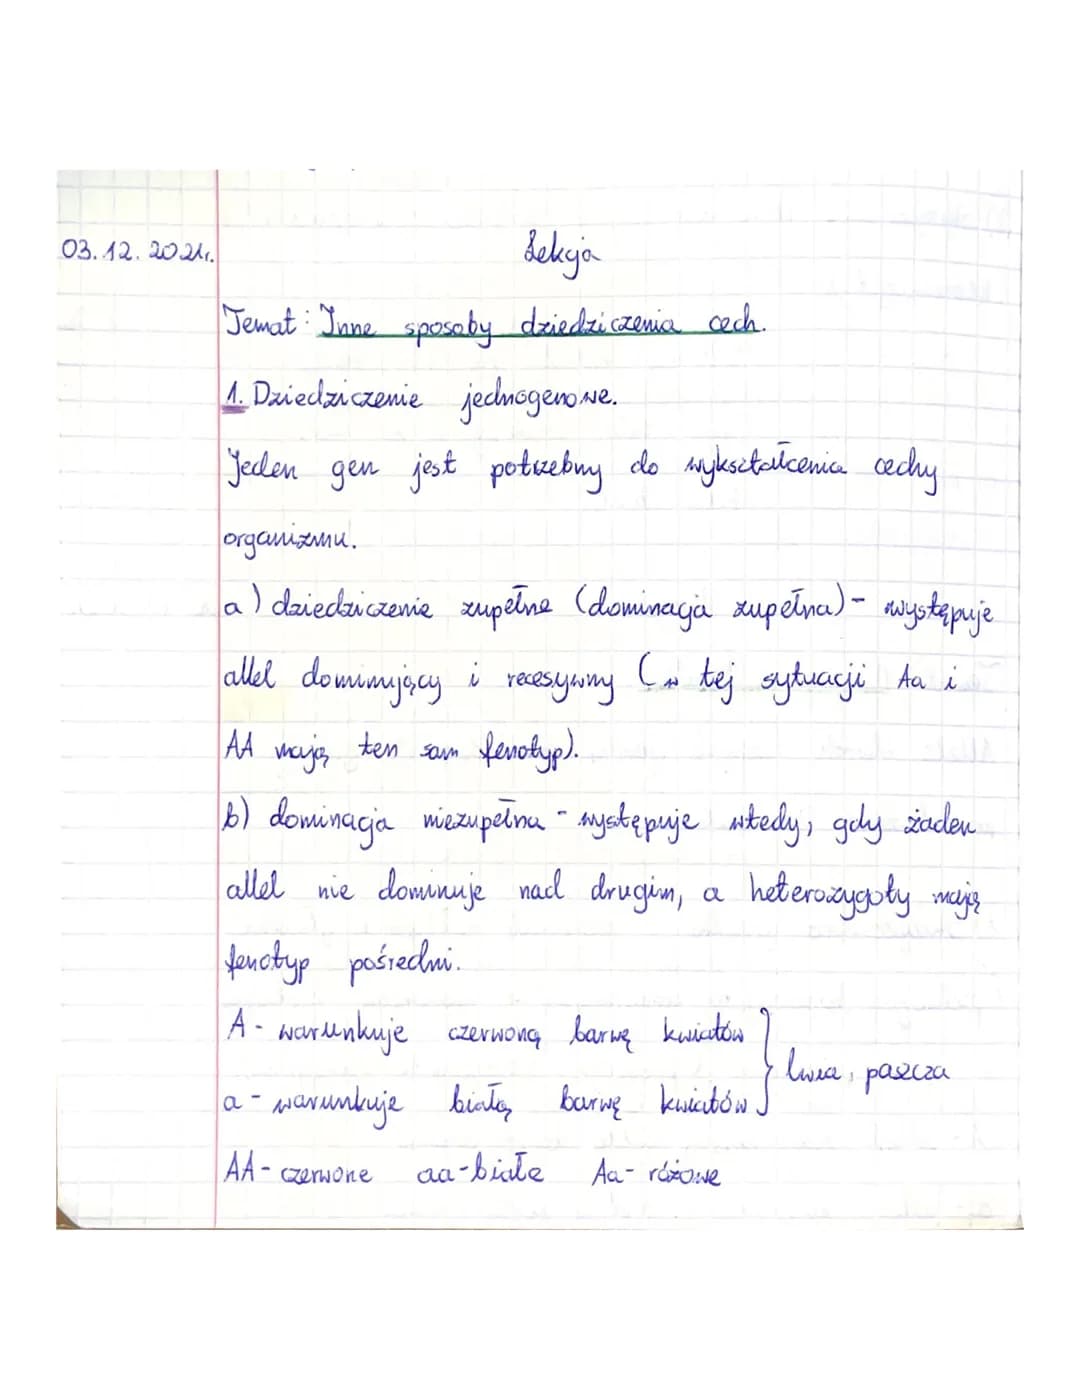 03.12.2021r.
Lekcja
Temat: Inne sposoby dziedziczenia cech.
1. Dziedziczenie jednogenowe.
Jeden gen jest potrzebny do wykształcenia cechy
organizmu.
a) dziedziczenie zupełne (dominacja zupełna) - występuje
allel dominujący i recesywny (w tej sytuacji Aa i
AA mają ten sam fenotyp).
b) dominacja niezupełna - występuje wtedy, gdy żaden
allel nie dominuje nad drugim, a heterozygoty mają
fenotyp pośredni.
A - warunkuje czerwoną barwę kwiatów
a - warunkuje białą barwę kwiatów
lwia paszcza
AA - czerwone aa - białe Aa - różowe